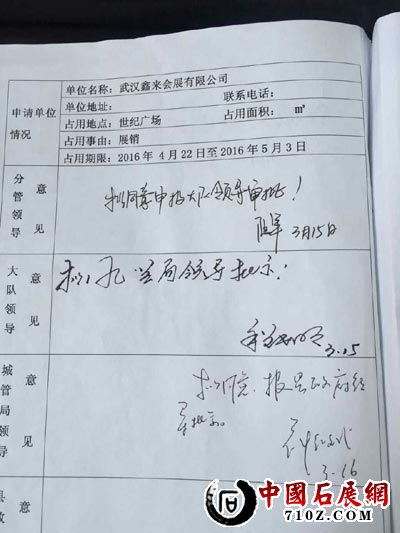 单位名称：武汉鑫来会展有限公司
申请单位情况
单位地址： 联系电话：
占用地点：世纪广场 占用面积： ㎡
占用事由：展销
占用期限：2016年4月22日至2016年5月3日
分管领导意见
拟同意申报大队领导审批！
3月15日
大队领导意见
呈局领导批示！
3.15
城管局领导意见
拟同意，报县政府
3.16
县
中國石展網
710Z.COM